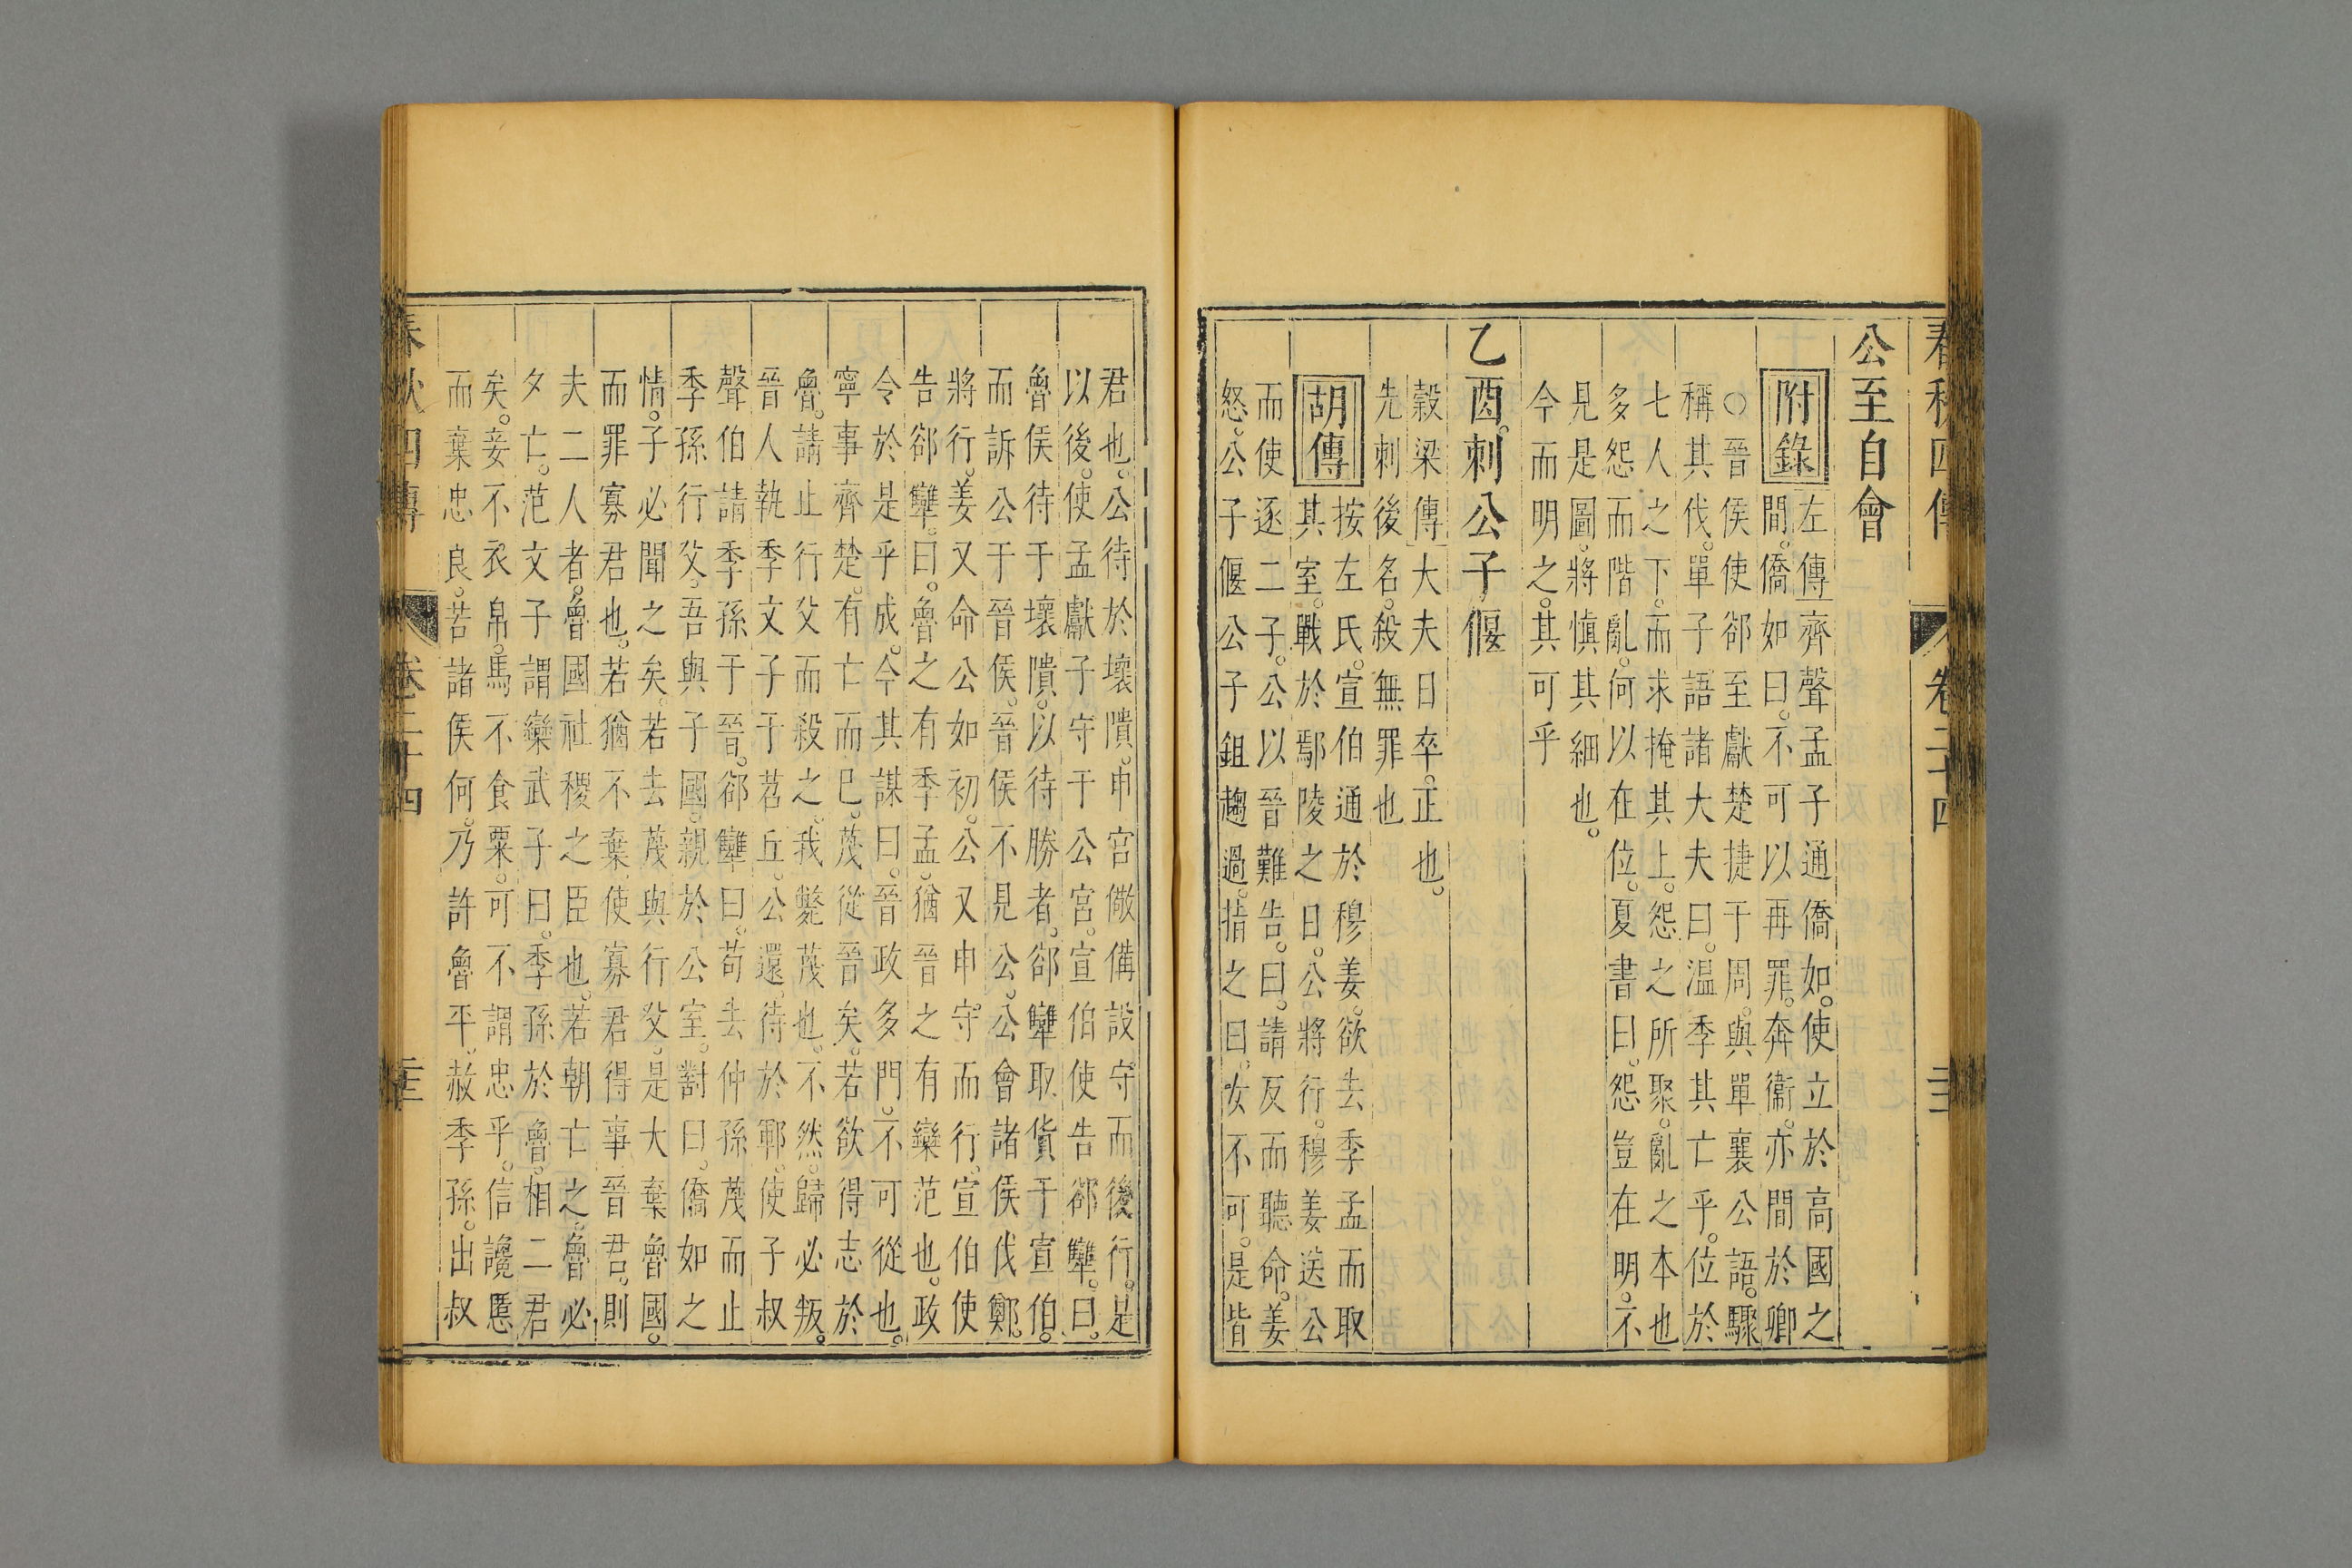 春秋四傳 卷二十四 二十三
公至自會
附錄
左傳齊聲孟子通僑如。使立於高國之
間。僑如曰。不可以再罪。奔衞。亦間於卿
○晉侯使郤至獻楚捷于周。與單襄公語。驟
稱其伐。單子語諸大夫曰。溫季其亡乎。位於
七人之下。而求掩其上。怨之所聚。亂之本也
多怨而階亂。何以在位。夏書曰。怨豈在明。不
見是圖。將愼其細也。
今而明之。其可乎
乙酉。刺公子偃
穀梁傳大夫日卒。正也。
先刺後名。殺無罪也
胡傳
按左氏。宣伯通於穆姜。欲去季孟而取
其室。戰於鄢陵之日。公將行。穆姜送公
而使逐二子。公以晉難告。曰。請反而聽命。姜
怒。公子偃公子鉏趨過。指之曰。女不可。是皆
君也。公待於壞隤。申宮儆備設守而後行。是
以後。使孟獻子守于公宮。宣伯使告郤犨。曰。
魯侯待于壞隤。以待勝者。郤犨取貨于宣伯。
而訴公于晉侯。晉侯不見公。公會諸侯伐鄭。
將行。姜又命公如初。公又申守而行。宣伯使
告郤犨。曰。魯之有季孟。猶晉之有欒范也。政
令於是乎成。今其謀曰。晉政多門。不可從也。
寧事齊楚。有亡而已。蔑從晉矣。若欲得志於
魯。請止行父而殺之。我斃蔑也。不然。歸必叛。
晉人執季文子于苕丘。公還。待於鄆。使子叔
聲伯請季孫于晉。郤犨曰。苟去仲孫蔑而止
季孫行父。吾與子國。親於公室。對曰。僑如之
情。子必聞之矣。若去蔑與行父。是大棄魯國。
而罪寡君也。若猶不棄。使寡君得事晉君。則
夫二人者。魯國社稷之臣也。若朝亡之。魯必
夕亡。范文子謂欒武子曰。季孫於魯。相二君
矣。妾不衣帛。馬不食粟。可不謂忠乎。信讒慝
而棄忠良。若諸侯何。乃許魯平。赦季孫。出叔
春秋四傳 卷二十四 二十三